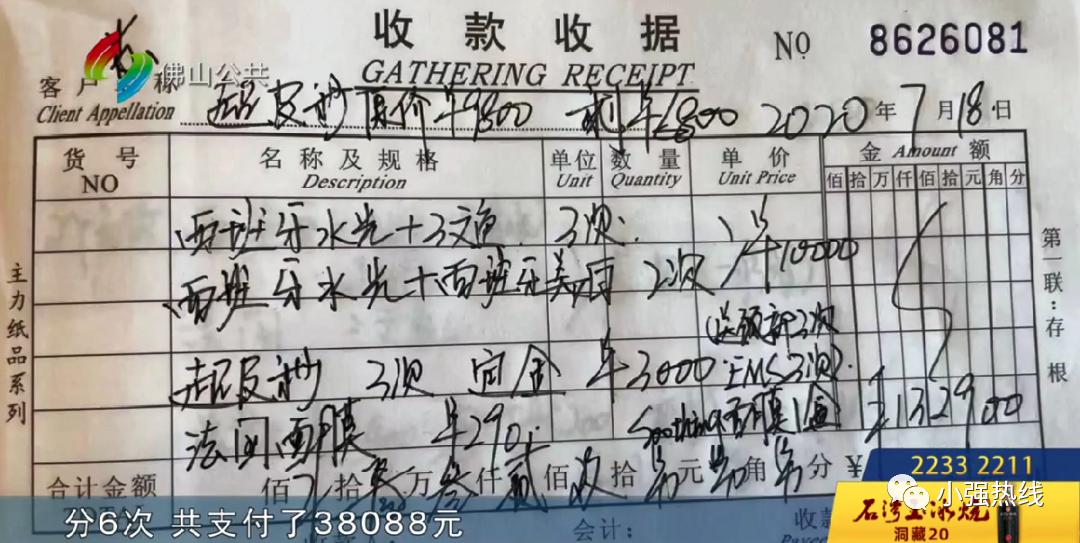 收款收据
NO 8626081
GATHERING RECEIPT
佛山公共
客户 称
Client Appellation
超皮秒 原价¥9800 剩¥6800 2020年7月18日
货号 名称及规格 单位 数量 单价 金 Amount 额
NO Description Unit Quantity Unit Price 佰拾万仟佰拾元角分
西班牙水光+三文鱼 3次
西班牙水光+西班牙美雨 2次 ¥10000
送颈部3次
超皮秒 3次 定金 ¥3000 EMS3次)
法国面膜 ¥290 面膜1盒 13290 0
合计金额 佰 拾 万叁仟贰佰 拾 元 角 分 ¥
第一联:存根
主力纸品系列
2233 2211
小强热线
石湾玉冰烧
洞藏20
分6次 共支付了38088元
会计:
收款